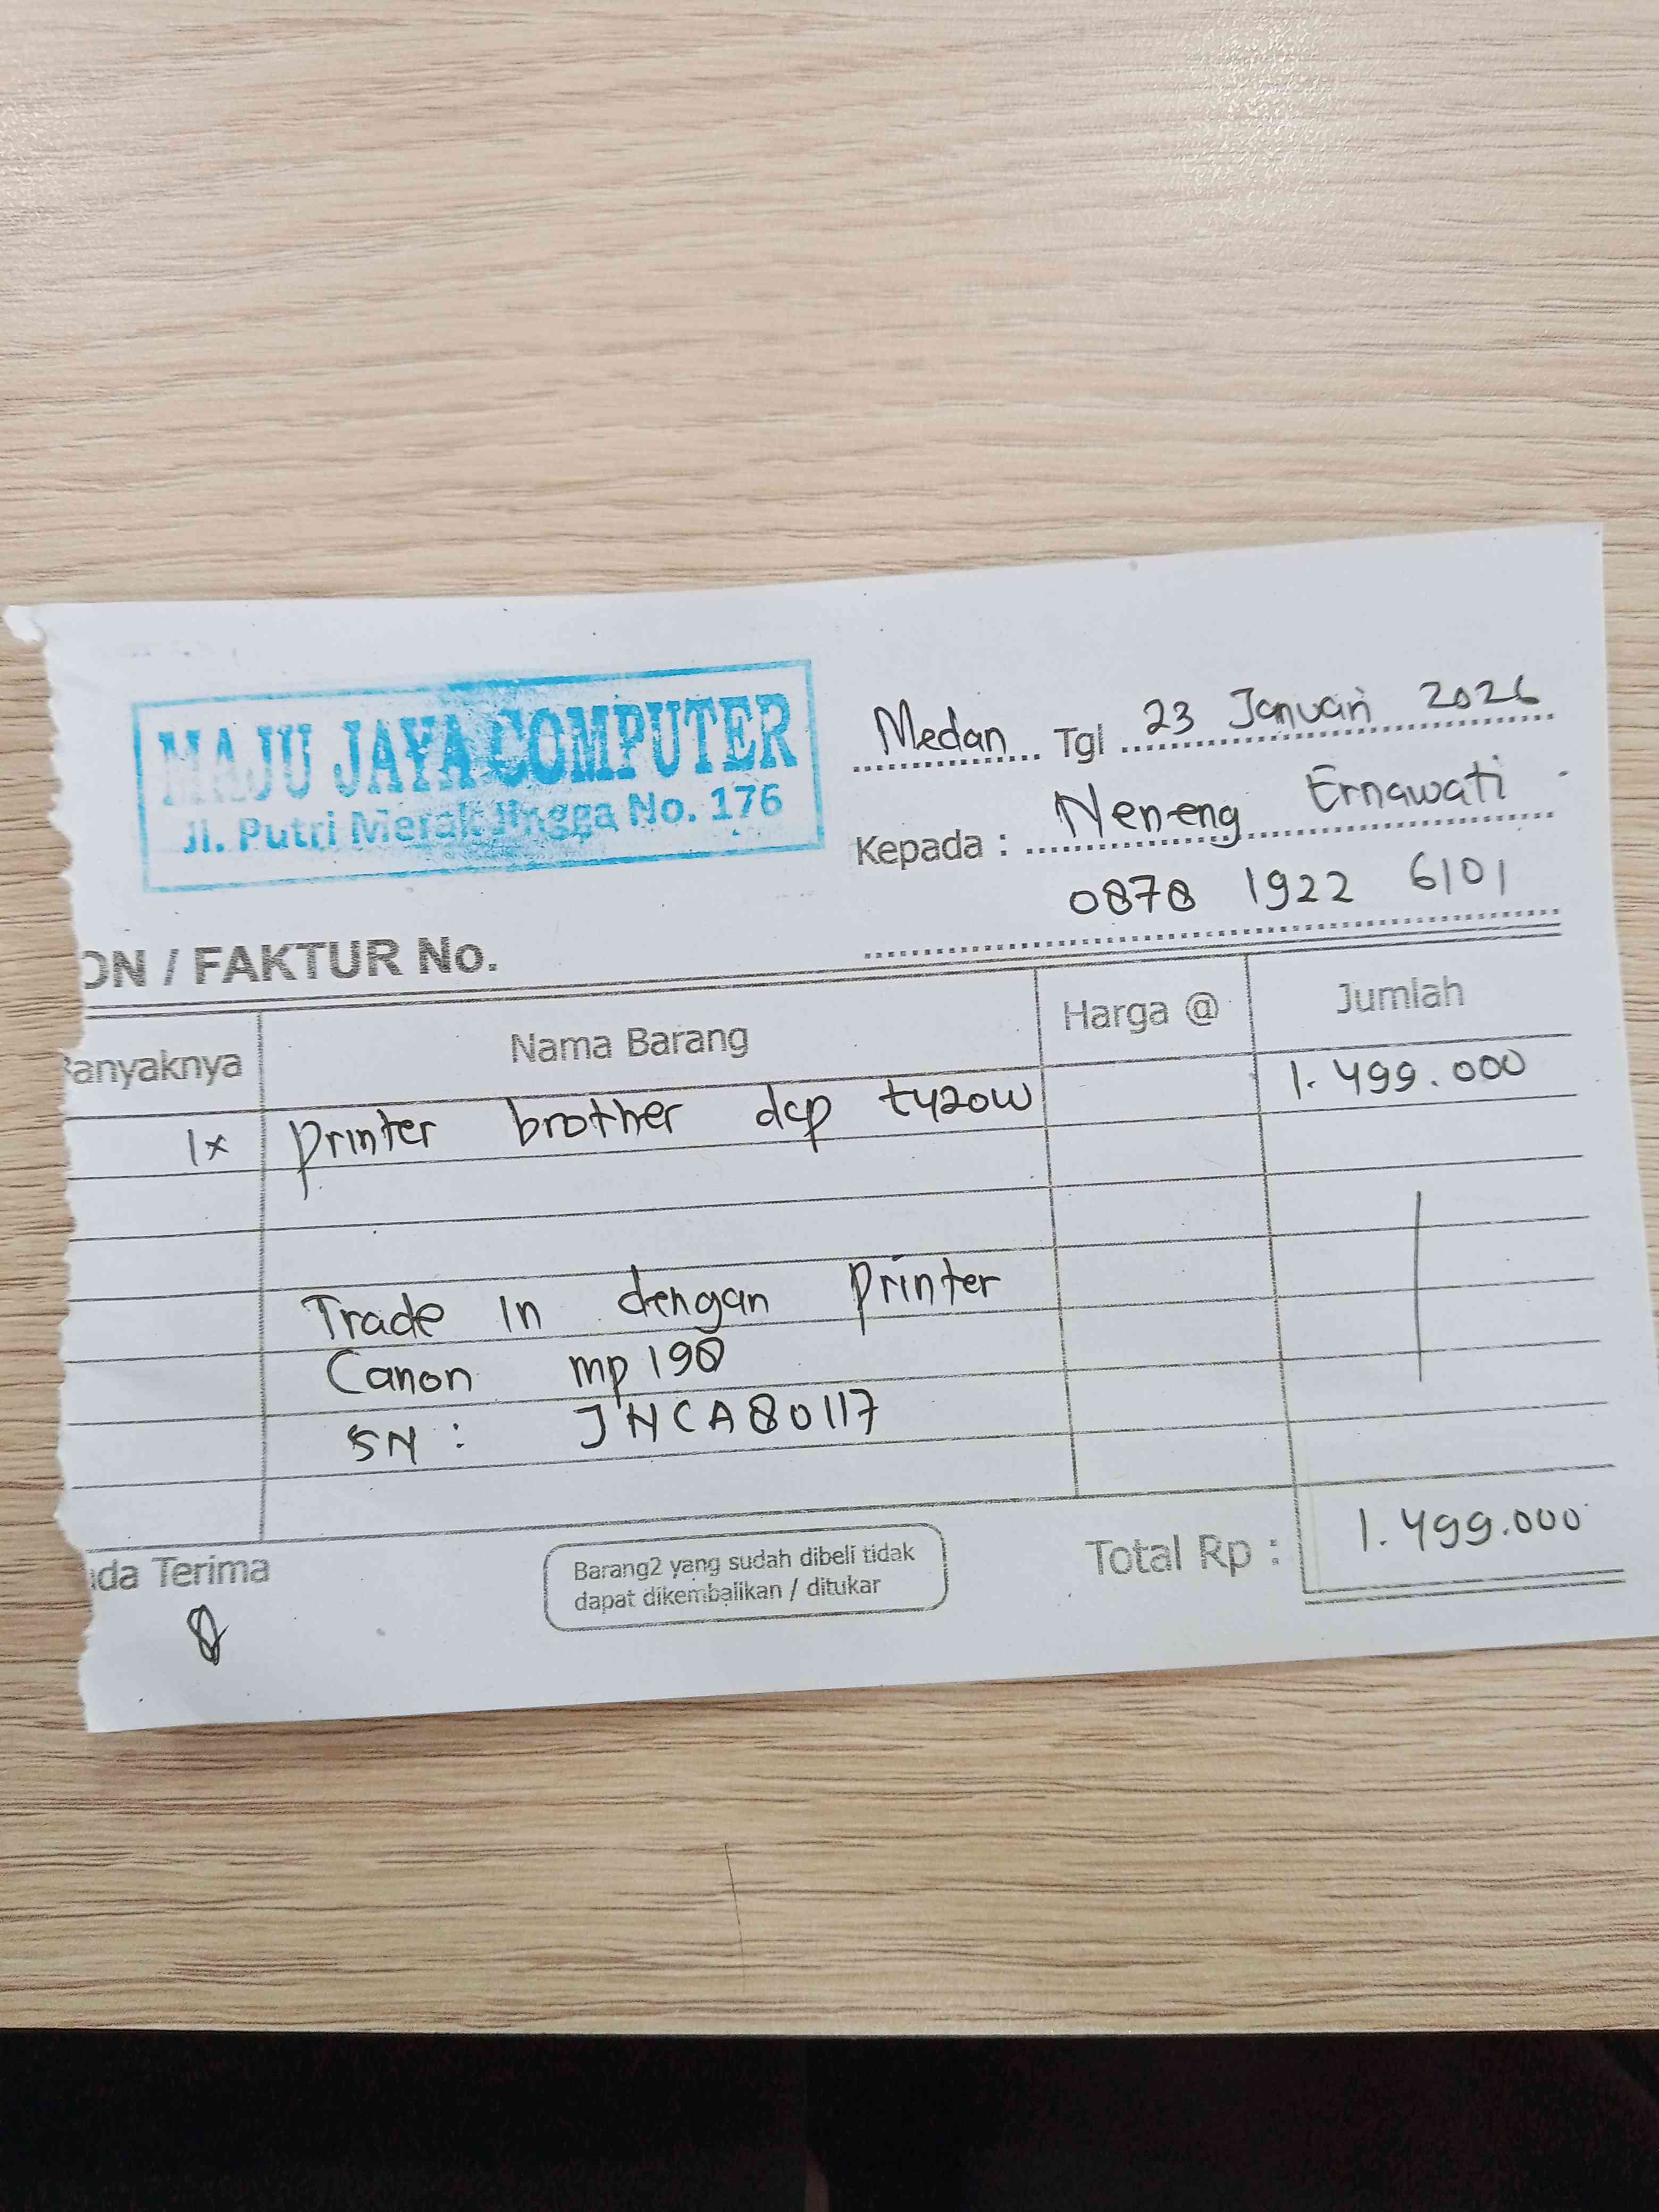 MAJU JAYA COMPUTER
Jl. Putri Merak Jingga No. 176
Medan Tgl 23 Januari 2026
Kepada : Neneng Ernawati
0878 1922 6101
ON / FAKTUR No.
Banyaknya Nama Barang Harga @ Jumlah
1x printer brother dcp t420w 1.499.000
Trade in dengan printer
Canon mp190
SN : JNCA80117
nda Terima
Barang2 yang sudah dibeli tidak
dapat dikembalikan / ditukar
Total Rp : 1.499.000